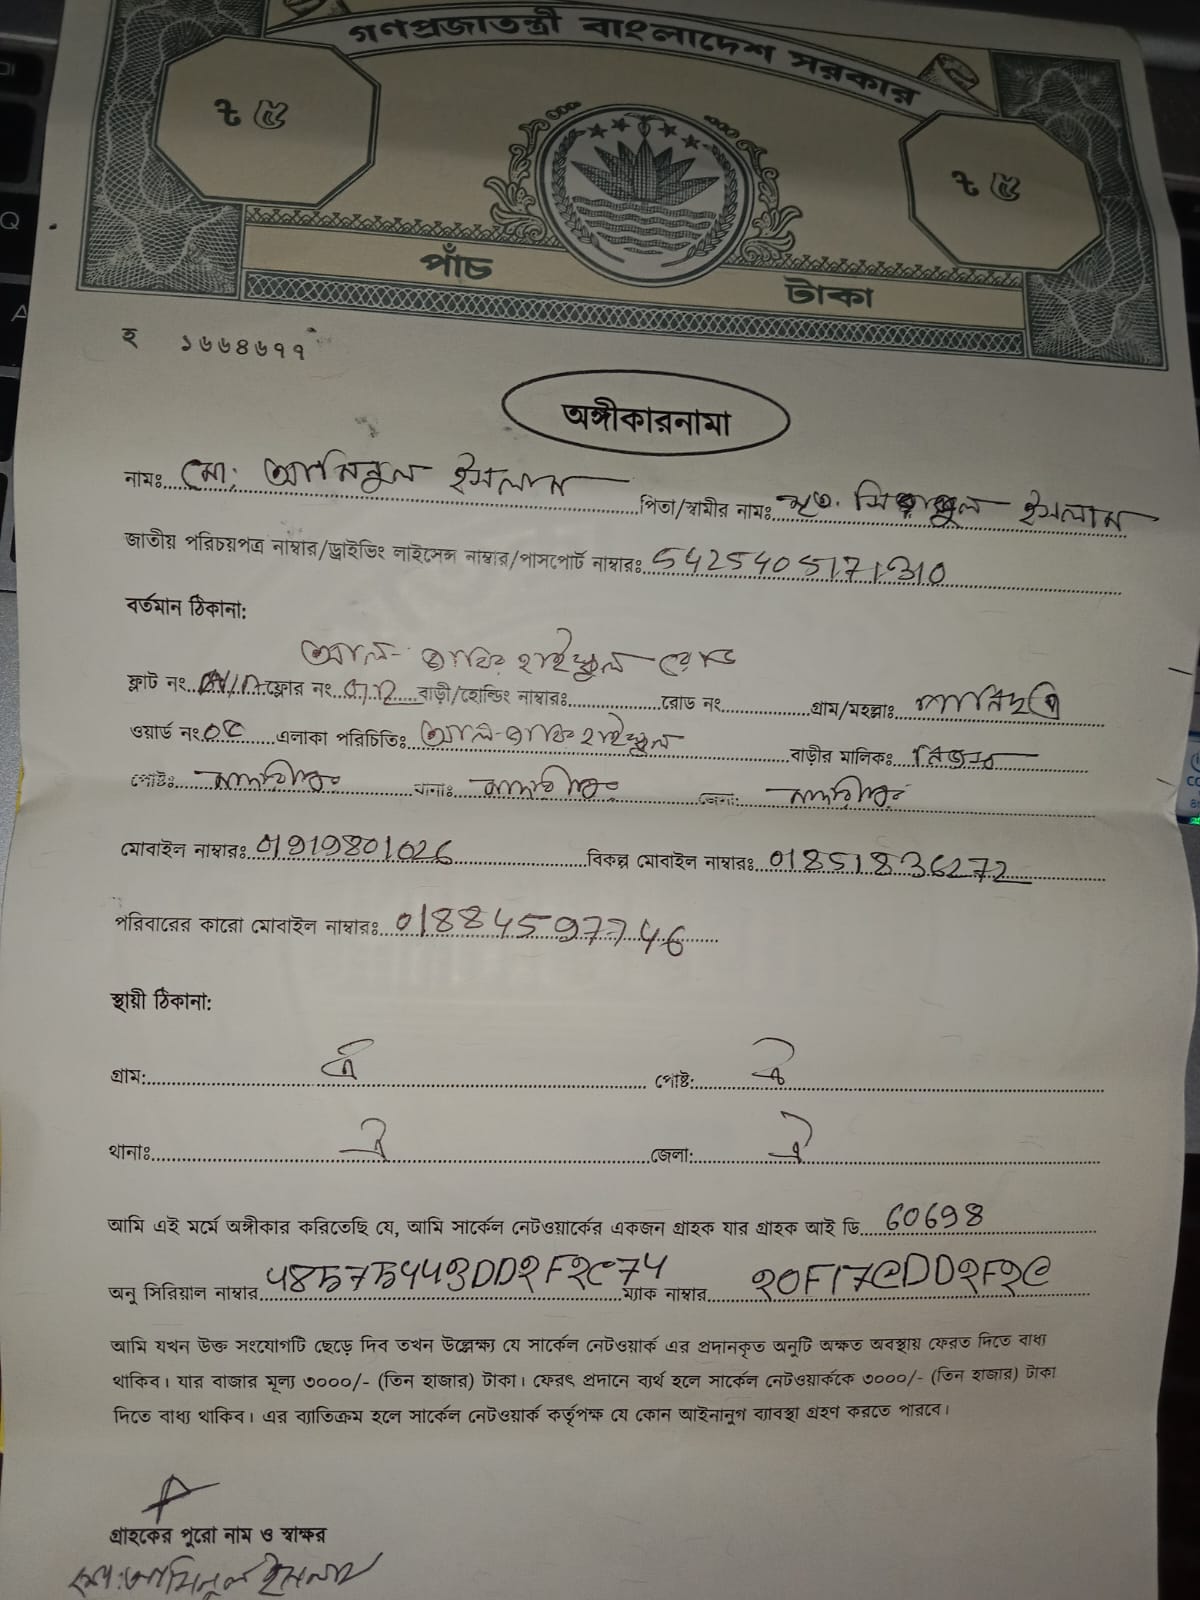 গণপ্রজাতন্ত্রী বাংলাদেশ সরকার
৳ ৫
৳ ৫
পাঁচ টাকা
হ ১৬৬৪৬৭৭
অঙ্গীকারনামা
নামঃ মো: আমিনুল ইসলাম পিতা/স্বামীর নামঃ মৃত. ইসলাম
জাতীয় পরিচয়পত্র নাম্বার/ড্রাইভিং লাইসেন্স নাম্বার/পাসপোর্ট নাম্বারঃ 5425405171310
বর্তমান ঠিকানা:
আল- হাইস্কুল রোড
ফ্লাট নং ফ্লোর নং বাড়ী/হোল্ডিং নাম্বারঃ রোড নং গ্রাম/মহল্লাঃ
ওয়ার্ড নং ০৫ এলাকা পরিচিতিঃ হাইস্কুল বাড়ীর মালিক: নিজস্ব
পোষ্টঃ মাদারীপুর থানাঃ মাদারীপুর জেলা: মাদারীপুর
মোবাইল নাম্বারঃ 01919801026 বিকল্প মোবাইল নাম্বারঃ 01851836272
পরিবারের কারো মোবাইল নাম্বারঃ 01884597746
স্থায়ী ঠিকানা:
গ্রাম: ঐ পোষ্ট: ঐ
থানাঃ ঐ জেলা: ঐ
আমি এই মর্মে অঙ্গীকার করিতেছি যে, আমি সার্কেল নেটওয়ার্কের একজন গ্রাহক যার গ্রাহক আই ডি 60698
অনু সিরিয়াল নাম্বার ম্যাক নাম্বার
আমি যখন উক্ত সংযোগটি ছেড়ে দিব তখন উল্লেক্ষ্য যে সার্কেল নেটওয়ার্ক এর প্রদানকৃত অনুটি অক্ষত অবস্থায় ফেরত দিতে বাধ্য
থাকিব। যার বাজার মূল্য ৩০০০/- (তিন হাজার) টাকা। ফেরৎ প্রদানে ব্যর্থ হলে সার্কেল নেটওয়ার্ককে ৩০০০/- (তিন হাজার) টাকা
দিতে বাধ্য থাকিব। এর ব্যাতিক্রম হলে সার্কেল নেটওয়ার্ক কর্তৃপক্ষ যে কোন আইনানুগ ব্যাবস্থা গ্রহণ করতে পারবে।
গ্রাহকের পুরো নাম ও স্বাক্ষর
মো: আমিনুল ইসলাম